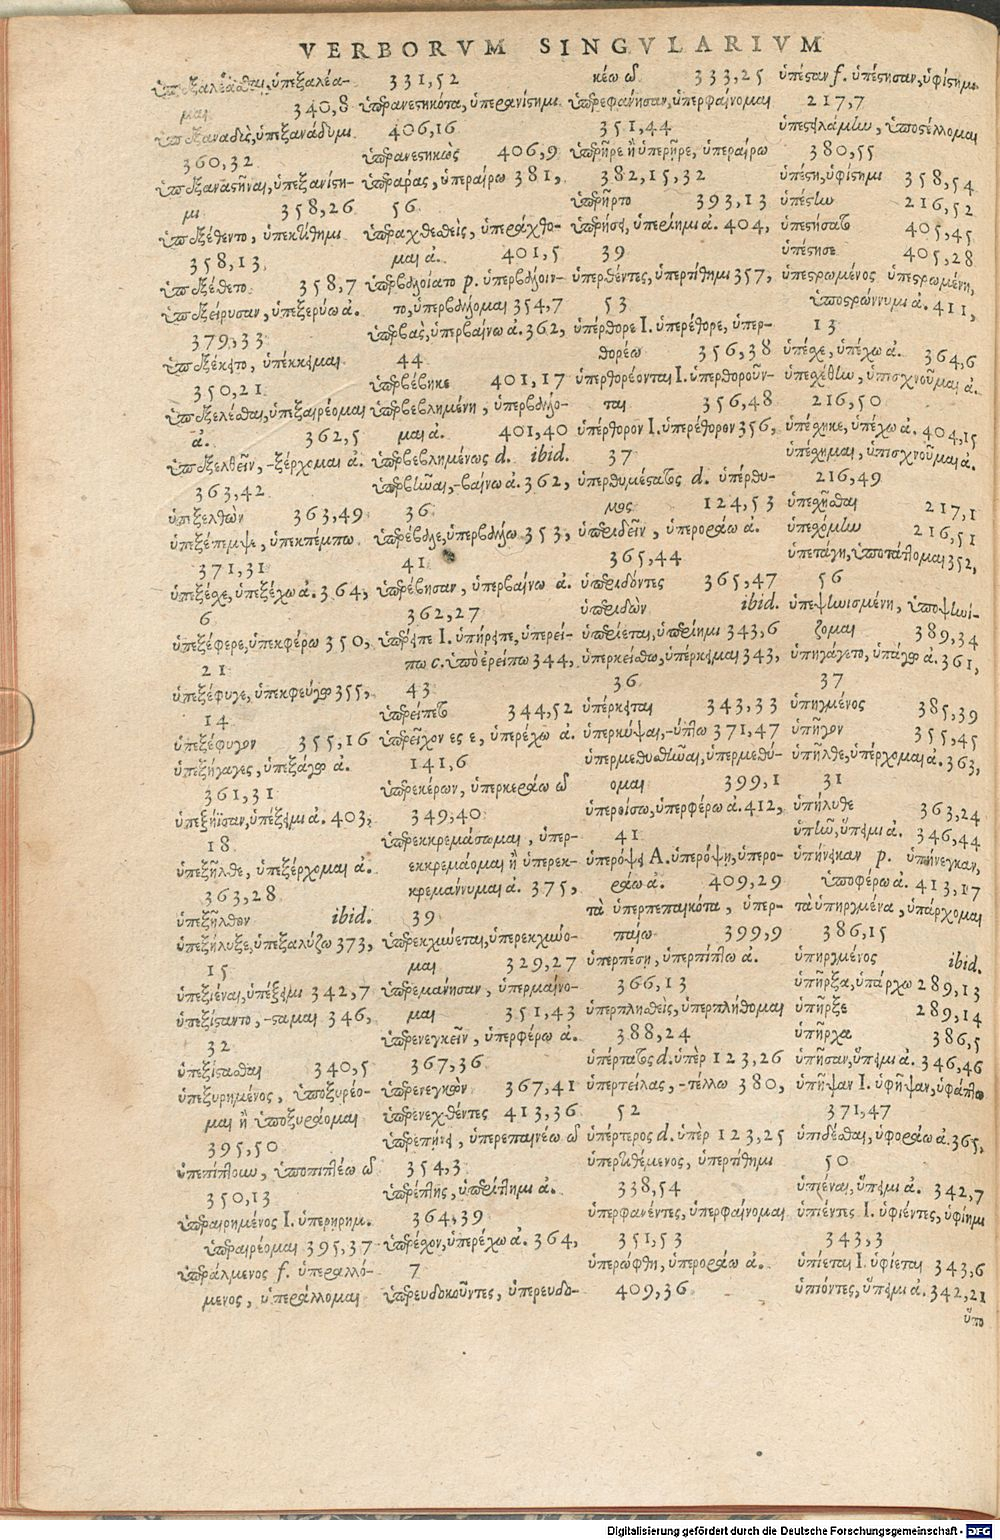 VERBORVM SINGVLARIVM
ὑπεξαλέασθαι, ὑπεξαλέα-
μαι 340,8
ὑπεξαναδὺς, ὑπεξανάδυμι
360,32
ὑπεξαναστῆναι, ὑπεξανίστη-
μι 358,26
ὑπεξέθεντο, ὑπεκτίθημι
358,13
ὑπεξέθετο 358,7
ὑπεξείρυσαν, ὑπεξερύω ἀ.
379,33
ὑπεξέκειτο, ὑπέκκειμαι
350,21
ὑπεξελέσθαι, ὑπεξαιρέομαι
ἀ. 362,5
ὑπεξελθεῖν, -ξέρχομαι ἀ.
363,42
ὑπεξελθὼν 363,49
ὑπεξέπεμψε, ὑπεκπέμπω
371,31
ὑπεξέσχε, ὑπεξέχω ἀ. 364,
6
ὑπεξέφερε, ὑπεκφέρω 350,
21
ὑπεξέφυγε, ὑπεκφεύγω 355,
14
ὑπεξέφυγον 355,16
ὑπεξήγαγες, ὑπεξάγω ἀ.
361,31
ὑπεξήϊσαν, ὑπέξειμι ἀ. 403,
18
ὑπεξῆλθε, ὑπεξέρχομαι ἀ.
363,28
ὑπεξῆλθον ibid.
ὑπεξήλυξε, ὑπεξαλύζω 373,
15
ὑπεξιέναι, ὑπέξειμι 342,7
ὑπεξίσταντο, -σταμαι 346,
32
ὑπεξίστασθαι 340,5
ὑπεξυρημένος, ὑποξυρέο-
μαι ἢ ὑποξυράομαι
395,50
ὑπεπίπλουν, ὑποπιπλέω ῶ
350,13
ὑπεραιρημένος I. ὑπερῃρημ.
ὑπεραιρέομαι 395,37
ὑπεράλμενος f. ὑπεραλλό-
μενος, ὑπεράλλομαι
331,52
ὑπερανεστηκότα, ὑπερανίστημι
406,16
ὑπερανεστηκὼς 406,9
ὑπεράρας, ὑπεραίρω 381,
56
ὑπεραχθεσθεὶς, ὑπεράχθο-
μαι ἀ. 401,5
ὑπερβαλοίατο p. ὑπερβάλοιν-
το, ὑπερβάλλομαι 354,7
ὑπερβὰς, ὑπερβαίνω ἀ. 362,
44
ὑπερβέβηκε 401,17
ὑπερβεβλημένη, ὑπερβάλλο-
μαι ἀ. 401,40
ὑπερβεβλημένως d. ibid.
ὑπερβῆναι, -βαίνω ἀ. 362,
36
ὑπερέβαλε, ὑπερβάλλω 353,
41
ὑπερέβησαν, ὑπερβαίνω ἀ.
362,27
ὑπέρειπε I. ὑπήρειπε, ὑπερεί-
πω c. ὑπὸ ἐρείπω 344,
43
ὑπερείπετο 344,52
ὑπερεῖχον ες ε, ὑπερέχω ἀ.
141,6
ὑπερεκέρων, ὑπερκεράω ῶ
349,40
ὑπερεκκρεμάσομαι, ὑπερ-
εκκρεμάομαι ἢ ὑπερεκ-
κρεμάννυμαι ἀ. 375,
39
ὑπερεκχύεται, ὑπερεκχύο-
μαι 329,27
ὑπερεμάνησαν, ὑπερμαίνο-
μαι 351,43
ὑπερενεγκεῖν, ὑπερφέρω ἀ.
367,36
ὑπερενεγκὼν 367,41
ὑπερενεχθέντες 413,36
ὑπερεπῄνει, ὑπερεπαινέω ῶ
354,3
ὑπερέπλης, ὑπερίπλημι ἀ.
364,39
ὑπερέσχον, ὑπερέχω ἀ. 364,
7
ὑπερευδοκοῦντες, ὑπερευδο-
κέω ῶ 333,25
ὑπερεφάνησαν, ὑπερφαίνομαι
351,44
ὑπερῆρε ἢ ὑπερῇρε, ὑπεραίρω
382,15,32
ὑπερῆρτο 393,13
ὑπερήσει, ὑπερίημι ἀ. 404,
39
ὑπερθέντες, ὑπερτίθημι 357,
53
ὑπέρθορε I. ὑπερέθορε, ὑπερ-
θορέω 356,38
ὑπερθορέονται I. ὑπερθοροῦν-
ται 356,48
ὑπέρθορον I. ὑπερέθορον 356,
37
ὑπερθυμέστατος d. ὑπέρθυ-
μος 124,53
ὑπεριδεῖν, ὑπεροράω ἀ.
365,44
ὑπεριδόντες 365,47
ὑπεριδὼν ibid.
ὑπερίεται, ὑπερίημι 343,6
ὑπερκείσθω, ὑπέρκειμαι 343,
36
ὑπέρκειται 343,33
ὑπερκύψαι, -ύπτω 371,47
ὑπερμεθυσθῶσαι, ὑπερμεθύ-
ομαι 399,1
ὑπεροίσω, ὑπερφέρω ἀ. 412,
41
ὑπερόψει A. ὑπερόψῃ, ὑπερο-
ράω ἀ. 409,29
τὰ ὑπερπεπαικότα, ὑπερ-
παίω 399,9
ὑπερπέσῃ, ὑπερπίπτω ἀ.
366,13
ὑπερπλησθεὶς, ὑπερπλήθομαι
388,24
ὑπέρτατος d. ὑπὲρ 123,26
ὑπερτείλας, -τέλλω 380,
52
ὑπέρτερος d. ὑπὲρ 123,25
ὑπερτιθέμενος, ὑπερτίθημι
338,54
ὑπερφανέντες, ὑπερφαίνομαι
351,53
ὑπερώφθη, ὑπεροράω ἀ.
409,36
ὑπέσταν f. ὑπέστησαν, ὑφίστημι
217,7
ὑπεστάλμην, ὑποστέλλομαι
380,55
ὑπέστη, ὑφίστημι 358,54
ὑπέστην 216,52
ὑπεστήσατο 405,45
ὑπέστησε 405,28
ὑπεστρωμένος ὑπεστρωμένη,
ὑποστρώννυμι ἀ. 411,
13
ὑπέσχε, ὑπέχω ἀ. 364,6
ὑπεσχέθην, ὑπισχνοῦμαι ἀ.
216,50
ὑπέσχηκε, ὑπέχω ἀ. 404,15
ὑπέσχημαι, ὑπισχνοῦμαι ἀ.
216,49
ὑπεσχῆσθαι 217,1
ὑπεσχόμην 216,51
ὑπετάγη, ὑποτάττομαι 352,
56
ὑπεψωνισμένη, ὑποψωνί-
ζομαι 389,34
ὑπηγάγετο, ὑπάγω ἀ. 361,
37
ὑπηγμένος 385,39
ὑπῆγον 355,45
ὑπῆλθε, ὑπέρχομαι ἀ. 363,
31
ὑπήλυθε 363,24
ὑπῆν, ὕπειμι ἀ. 346,44
ὑπήνεικαν p. ὑπήνεγκαν,
ὑποφέρω ἀ. 413,17
τὰ ὑπηργμένα, ὑπάρχομαι
386,15
ὑπηργμένος ibid.
ὑπῆρξα, ὑπάρχω 289,13
ὑπῆρξε 289,14
ὑπῆρχα 386,5
ὑπῆσαν, ὕπειμι ἀ. 346,46
ὑπῆψαν I. ὑφῆψαν, ὑφάπτω
371,47
ὑπιδέσθαι, ὑφοράω ἀ. 365,
50
ὑπιέναι, ὕπειμι ἀ. 342,7
ὑπιέντες I. ὑφιέντες, ὑφίημι
343,3
ὑπίεται I. ὑφίεται 343,6
ὑπιόντες, ὕπειμι ἀ. 342,21
ὕπο
Digitalisierung gefördert durch die Deutsche Forschungsgemeinschaft - DFG